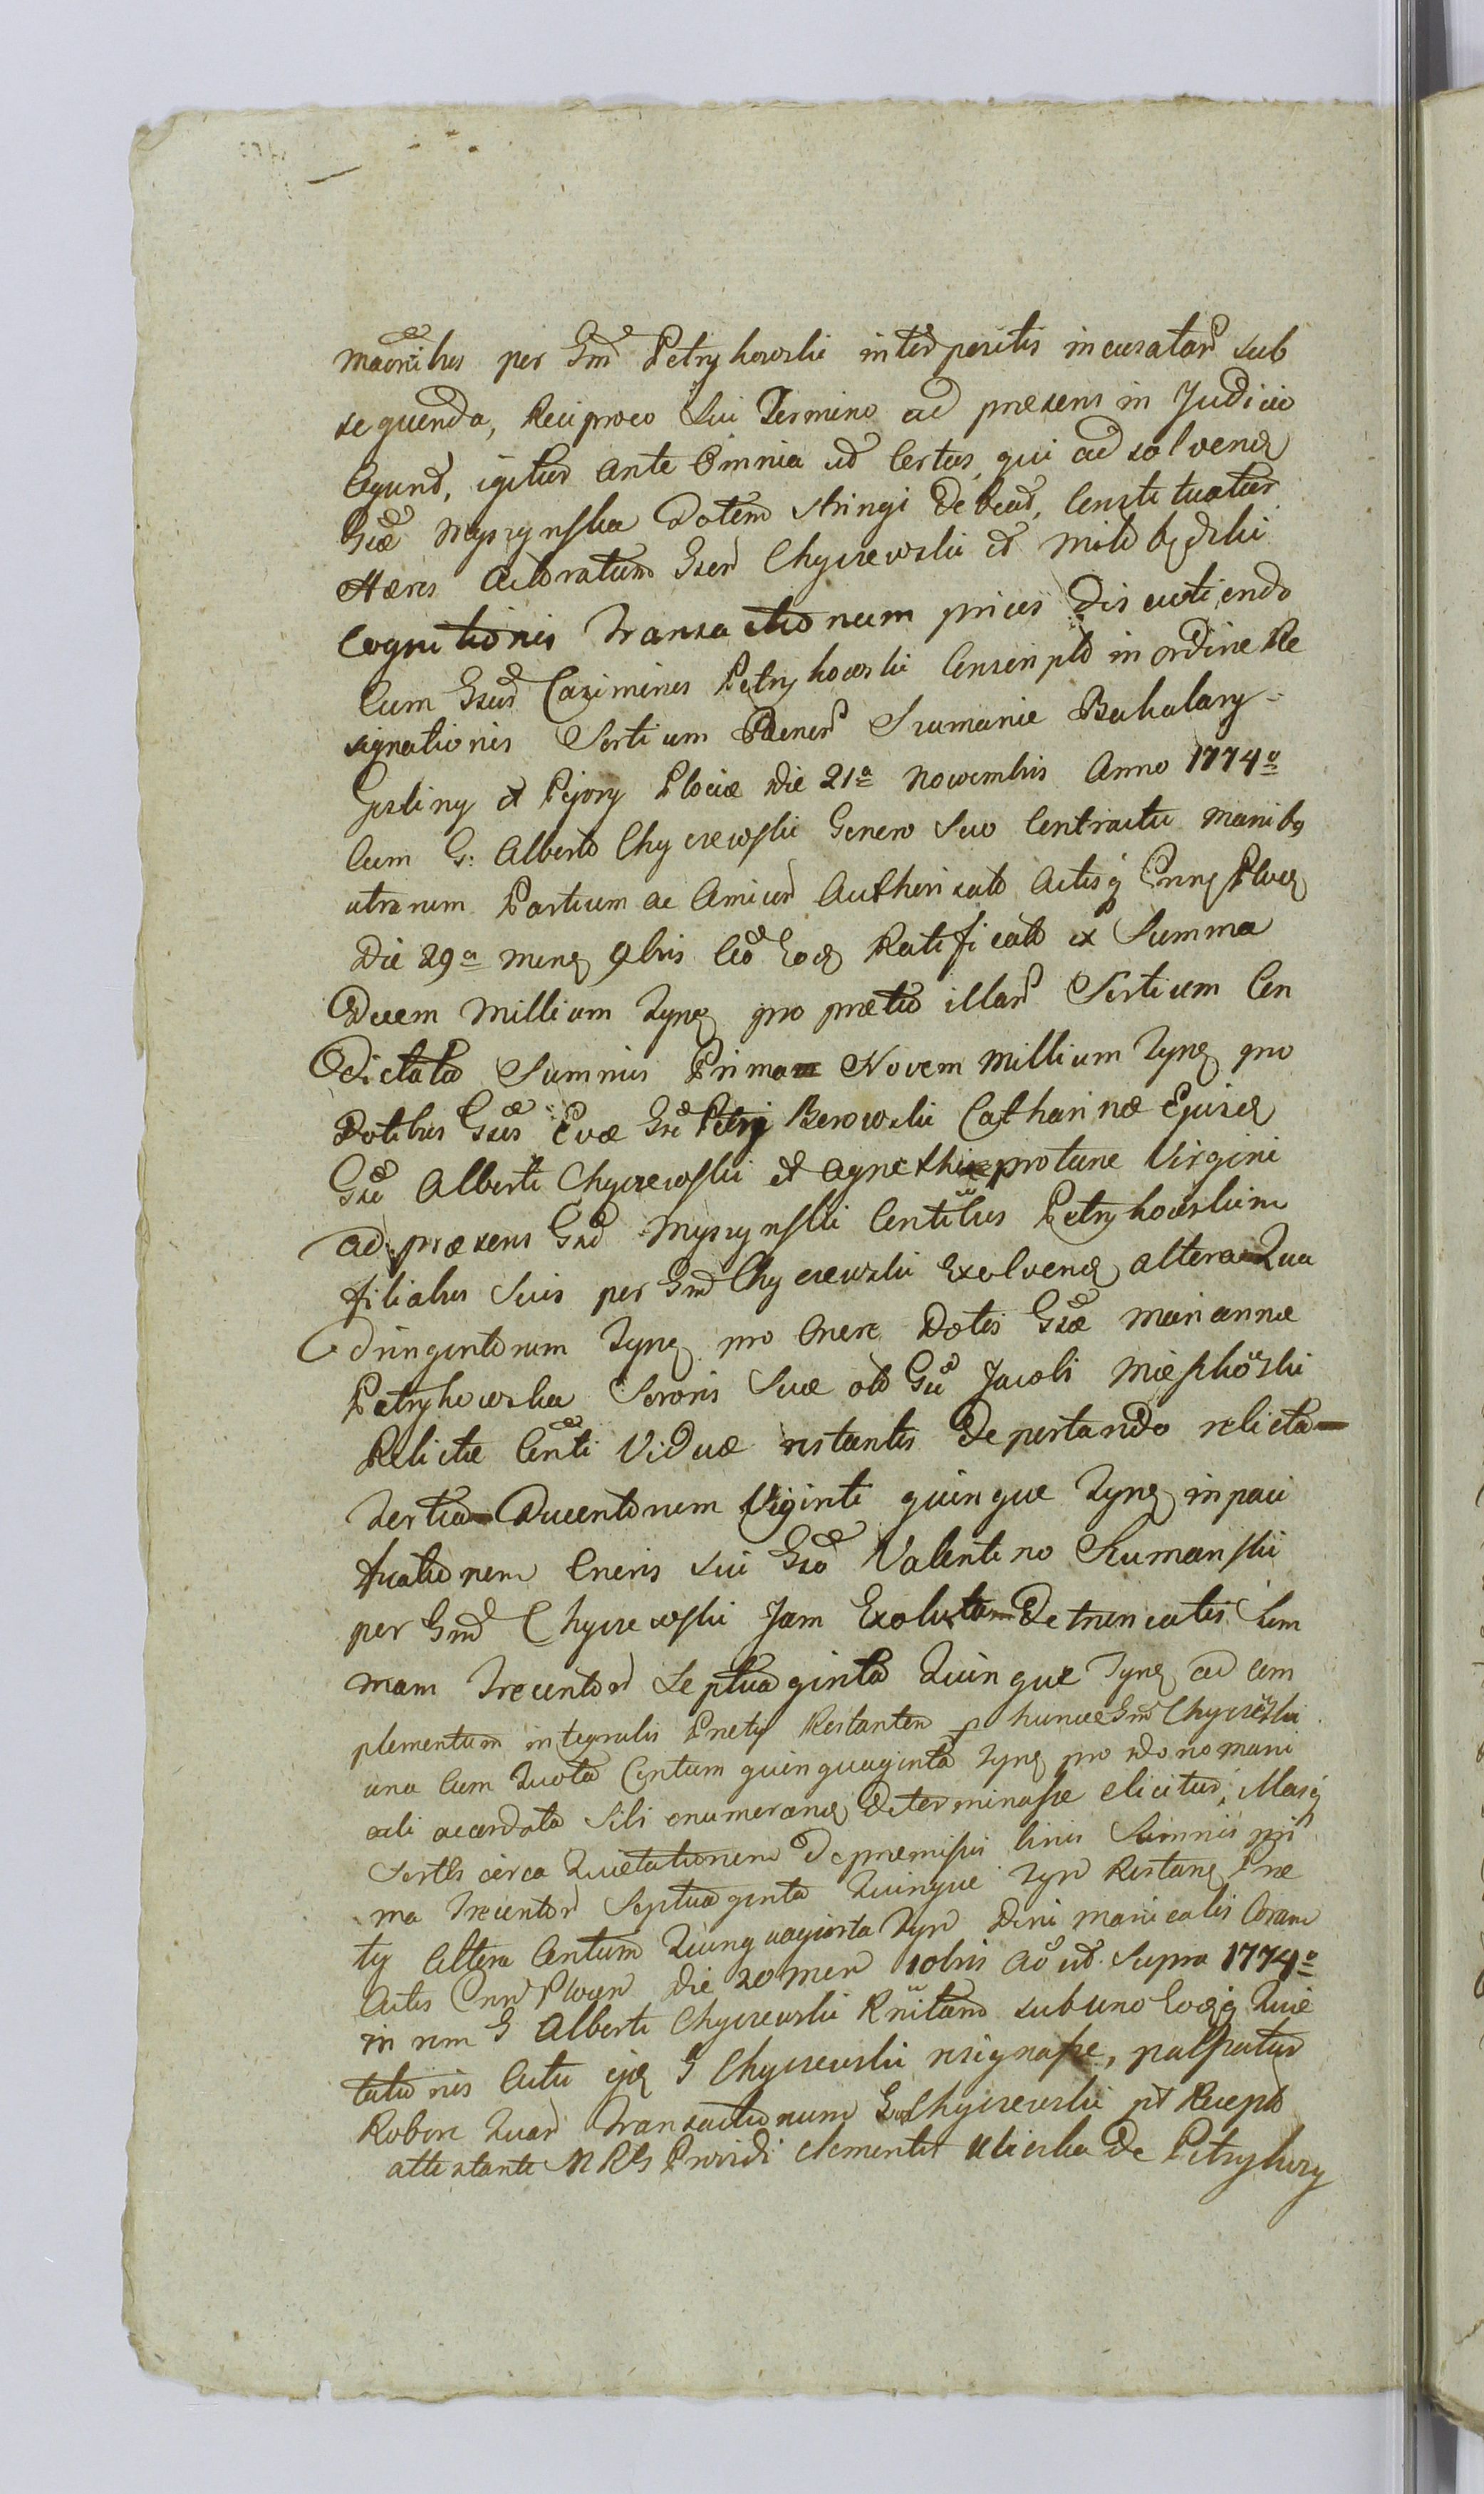 maonibus per Gm Petrykowski interpositis incusatar sub
sequenda, Reciproco sui Termino ad præsens in Judicio
Agund, igitur Ante Omnia ut Certus, qui ad solvend
Gsæ Myszynska Dotem stringi debeat, Constituatur
Hæres Actoratum Gser Chyczewski et Militibq dski
Cognitionis Transactionum prius Discutiendo
Cum Gsus Casimirus Petrykowski Conscripto in ordine Re
signationis Sortium Bonor Szumanie Bakalary =
Gosliny et Pejory Plociæ Die 21a Novembris Anno 1774o
Cum G: Alberto Chyczewski Genero Suo Contractu manibq
utrarum Partium ac Amicor Authorisato Actisq Cnnq Plocq
Die 29a Mensq 9bris Ao Eodq Ratificato ex Summa
Decem Millium Tynq pro prætio illar Sortium Con
Dictata Summis Prima Novem Millium Tynq pro
Dotibus Gsis Evæ Gsi Petri Berowski Catharinæ Ejusdq
Gsi Alberti Chyczewski et Agnethæ protunc Virgini
ad præsens Gsi Myszynski Contibus Petrykowskim
filiabus Suis per Gm Chyczewski Exolvendq altera Qua
Dringentorum Tynq pro Onere Dotis Gsæ Mariannæ
Petrykowska Sororis Suæ olo Gsi Jacobi Miesskowski
Relictæ Conti Viduæ restantis Deportando relicta
Tertia Ducentorum Viginti quinque Tynq in paci
ficationem Oneris sui Gso Valentino Szumanski
per Gm Chyczewski Jam Exoluta Detruncatis Sum
mam Trecentor Septuaginta Quinque Tynq ad com
plementum integralis Prety Restantem p hunce Gm Chyczewski
una Cum Quota Centum quinquaginta Tynq pro dono mani
cali accordata Sibi enumerandq Determinasse elicitur, Illasq
Sortes circa Quietationem De præmissis binis Summis pri
ma Trecentor Septuaginta Quinque Tyn Restanq Præ
ty Altera Centum Quinquaginta Tyn Doni Manicalis Coram
Actis Cnn Plocen Die 20 Men 10bris Ao ut Supra 1774o
in rem G Alberti Chyczewski Rnitam sub uno Eodq Quie
tationis Actu ejq G Chyczewski resignasse, palpatur
Robore Quar Transactionum G Chyczewski pt Recepto
attestante NRs Providi Clementis Uliaska De Petrykozy